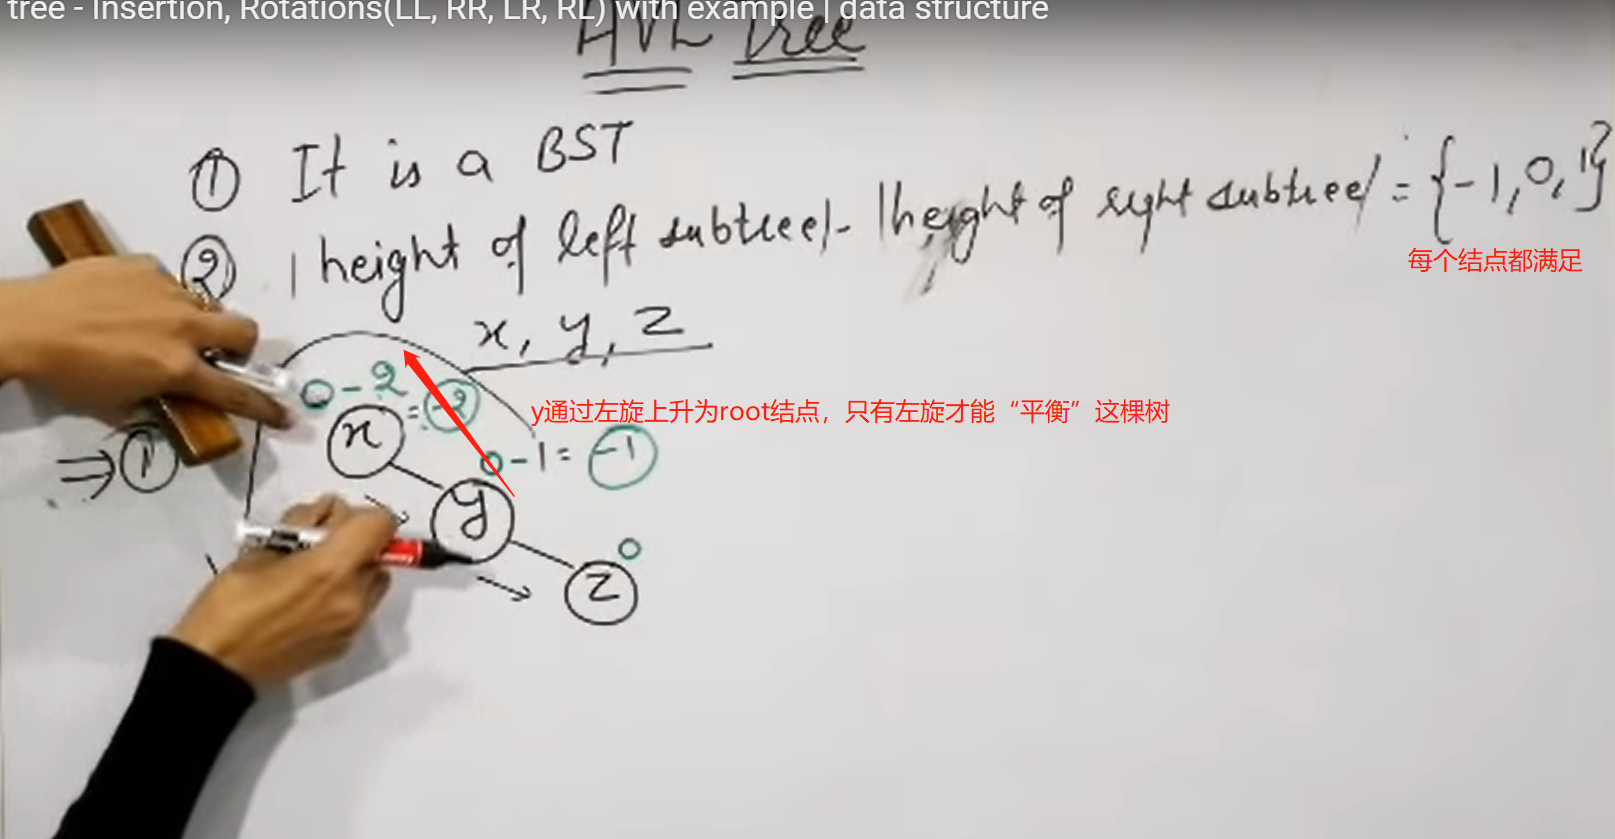 tree - Insertion, Rotations(LL, RR, LR, RL) with example | data structure
AVL tree
① It is a BST
② | height of left subtree| - |height of right subtree| = {-1, 0, 1}
每个结点都满足
x, y, z
0 - 2 = -2
y通过左旋上升为root结点，只有左旋才能“平衡”这棵树
⇒ ①
x
0 - 1 = -1
y
0
z